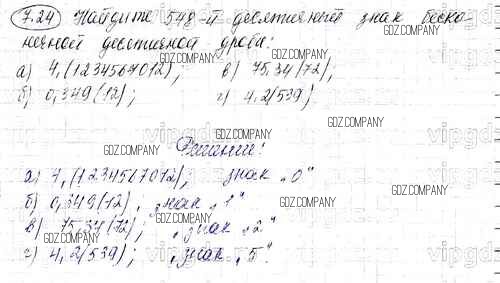 7.24 Найдите 548-й десятичный знак беско-
нечной десятичной дроби:
GDZ.COMPANY
а) 4,(1234567012); в) 75,34(72);
б) 0,349(12); г) 4,2(539)
GDZ.COMPANY
GDZ.COMPANY
GDZ.COMPANY
Решение:
GDZ.COMPANY
а) 7,(1234567012), знак „0"
GDZ.COMPANY
б) 0,349(12), знак „1"
GDZ.COMPANY
GDZ.COMPANY
в) 75,34(72); знак „2"
GDZ.COMPANY
GDZ.COMPANY
г) 4,2(539); знак „5"